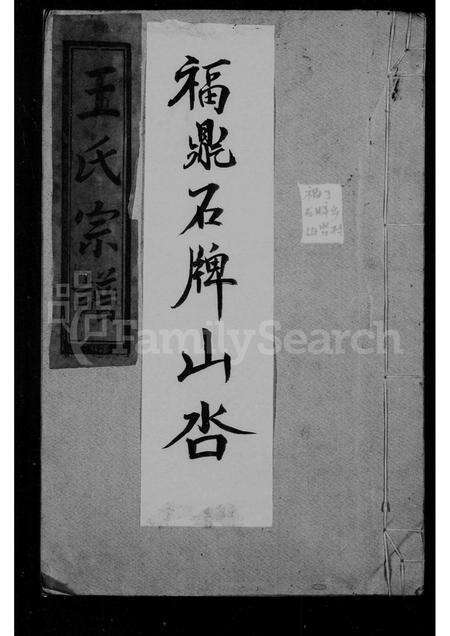 王氏宗譜
福鼎石牌山沓
FamilySearch